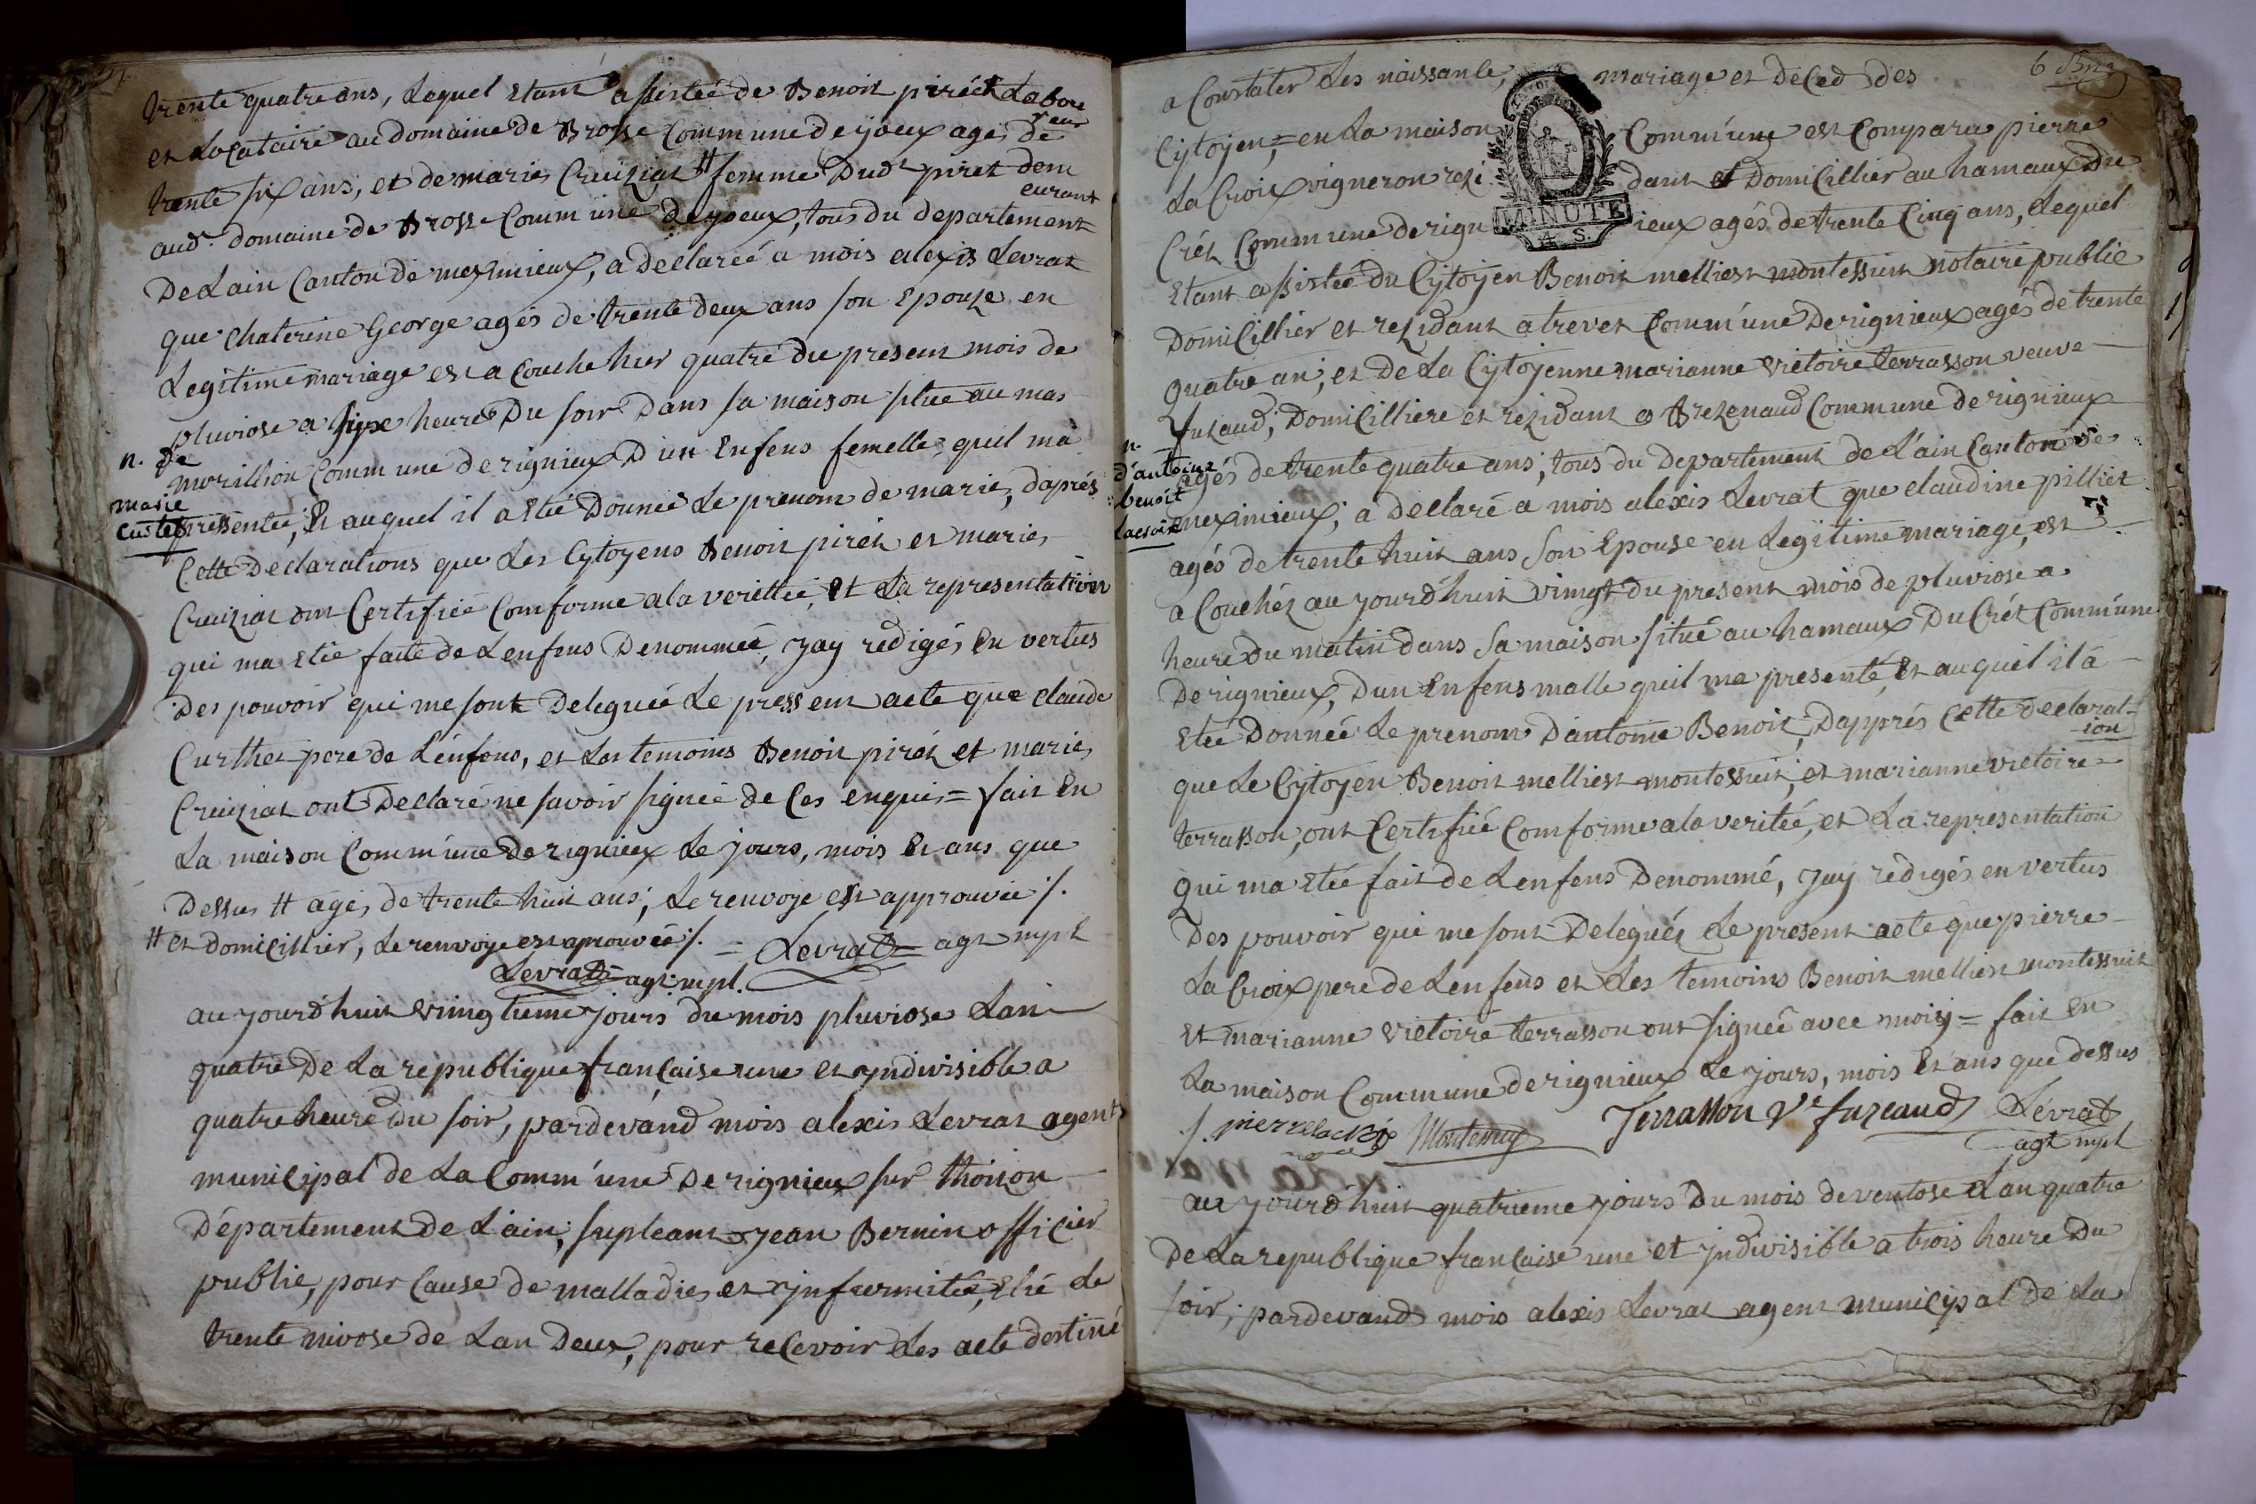 trente quatre ans, Lequel Etant assistée de Benoit pirét Laboureur
et Locataire au domaine de Brosse Commune de yoeux agés de
trente six ans, et de marie Cruiziat # femme Dudt piret demeurant
audt domaine de Brosse Commune de yoeux, tous du departement
De Lain Canton de meximieux, a declareé a mois alexis Levrat
que Chaterine George agés de trente deux ans son Epouze en
Legitime mariage est a Couche hier quatre du present mois de
pluviose a sixe heure Du soir Dans sa maison situe au mas
n. de
morillion Commune de rignieux D'un Enfens femelle, quil ma
marie
Curtet
pressenteé, Et auquel il a Eteé Donnée Le prenom de marie, daprés
Cette Declarations que Les Cytoyens Benoit pirét et marie
Cruiziat ont Certifieé Comforme a la veritteé, et La representation
qui ma Eteé faite de Lenfens Denommeé, jay rédigés En vertus
Des pouvoir qui me sont Delegueé Le pressent acte que claude
Curthet pere de Lénfens, et Les temoins Benoit pirét et marie
Cruiziat ont Declaré ne savoir signeé de Ces enquis = fait En
La maison Commune de rignieux Le jours, mois Et ans que
Dessus # agés de trente huit ans; Le renvoye est approuveé /.
# et domicillier, Le renvoye est aprouveé /. = Levrat = agt mpl
Levrat agt mpl.
au jourdhuit vingtieme jours du mois pluviose Lan
quatre De La republique française une et yndivisible a
quatre heure du soir, pardevand mois alexis Levrat agent
municipal de La Commune De rignieux sur thoison
Département de L'ain; supleant jean Bernin officier
publie, pour Cause de malladies et ynfirmitée, Elié Le
trente nivose de Lan Deux, pour recevoir Les acte destiné
6
a Constater Les naissance, mariage et deced des
Cytoyen, = en La maison Commune est Comparu pierre
La Croix vigneron rezidant et Domicillier au hamaux du
Crét Commune de rignieux agés de trente Cinq ans, Lequel
MINUTE
4 S.
Etant assisteé du Cytoyen Benoit melliest montessuit notaire publie
Domicillier et rezidant a trevet Commune De rignieux agés de trente
quatre an, et de La Cytoyenne marianne victoire terrasson veuve
Juzaud, Domicilliere et rezidant a Brezenaud Commune de rignieux
n.
d'antoine
benoit
Lacroix
agés de trente quatre ans, tous du Departement de L'ain Canton de
meximieux, a déclaré a mois alexis Levrat que claudine pilliet
agés de trente huit ans son Epouse en Legitime mariage, est
a Couchéz au jourdhuit vingt du present mois de pluviose a
heure du matin dans sa maison situé au hamaux Du Crét Commune
De rignieux, Dun Enfens malle quil ma presenté, et auquel il a
Eteé Donnée Le prenom D'antoine Benoit, Dapprés Cette declaration
que Le Cytoyen Benoit melliest montessuit, et marianne victoire
terrasson, ont Certifieé Comforme a la veriteé, et La representation
qui ma Eteé fait de Lenfens Denommé, jay rédigés en vertus
Des pouvoir qui me sont Deleguéz Le present acte que pierre
La Croix pere de Lenfens et Les temoins Benoit melliest montessuit
et marianne victoire terrasson ont signeé avec moisy = fait En
La maison Commune de rignieux Le jours, mois Et ans que dessus
/. pierre la Montessuy Terrasson Ve Juzeaud Levrat
agt mpl
au jourdhuit quatrieme jours Du mois de ventose Lan quatre
De La republique française une et yndivisible a trois heure Du
soir, pardevand mois alexis Levrat agent municipal de La